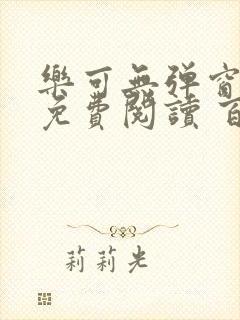 樂可無弹窗
免費閱讀 百
莉莉光